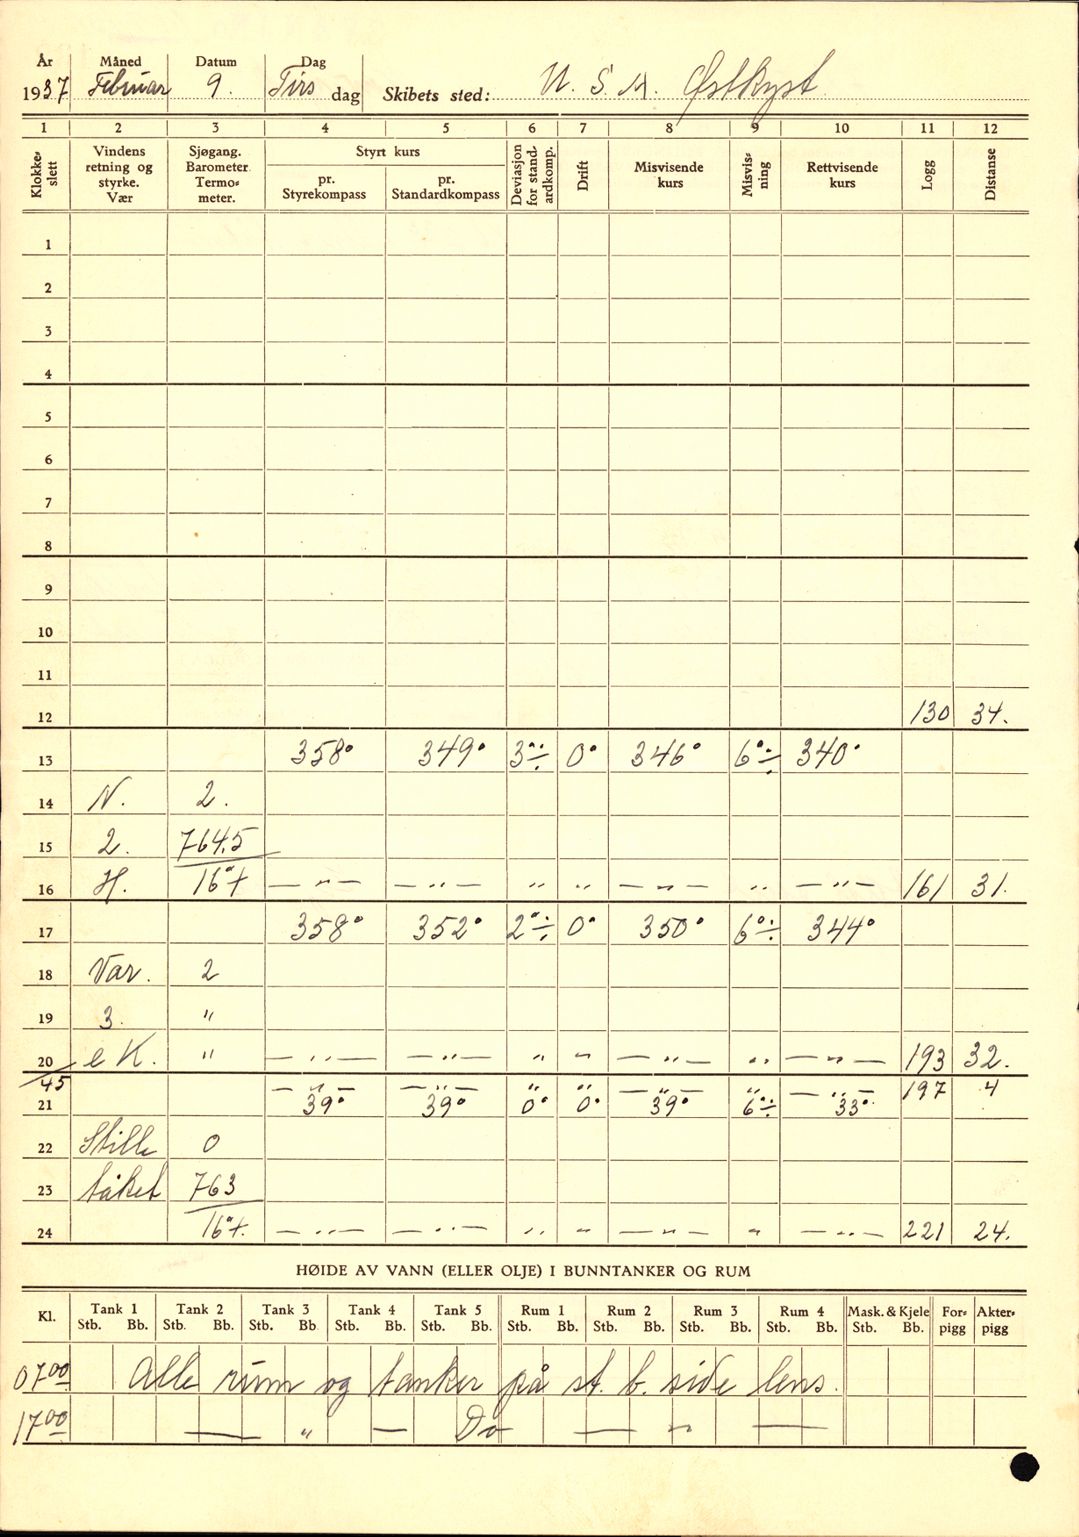 År Måned Datum Dag
1937 Februar 9. Tirs dag Skibets sted: U. S. A. Østkyst
1 2 3 4 5 6 7 8 9 10 11 12
Klokke=slett Vindens retning og styrke. Vær Sjøgang. Barometer. Termo=meter. Styrt kurs pr. Styrekompass pr. Standardkompass Deviasjon for stand-ardkomp. Drift Misvisende kurs Misvis=ning Rettvisende kurs Logg Distanse
1
2
3
4
5
6
7
8
9
10
11
12 130 34.
13 358° 349° 3° ÷ 0° 346° 6° ÷ 340°
14 N. 2.
15 2. 764.5
16 H. 16°+ — " — — " — " " — " — " — " — 161 31.
17 358° 352° 2° ÷ 0° 350° 6° ÷ 344°
18 Var. 2
19 3. "
20 e K. " — " — — " — " " — " — " — " — 193 32.
45 — " — — " — " " — " — " — " — 197 4
21 39° 39° 0° 0° 39° 6° ÷ 33°
22 Stille 0
23 tåket 763
24 16°+. — " — — " — " " — " — " — " — 221 24.
HØIDE AV VANN (ELLER OLJE) I BUNNTANKER OG RUM
Kl. Tank 1 Tank 2 Tank 3 Tank 4 Tank 5 Rum 1 Rum 2 Rum 3 Rum 4 Mask. & Kjele For=pigg Akter=pigg
Stb. Bb. Stb. Bb. Stb. Bb. Stb. Bb. Stb. Bb. Stb. Bb. Stb. Bb. Stb. Bb. Stb. Bb. Stb. Bb.
0700 Alle rum og tanker på st. b. side lens.
1700 — " — Do — " —